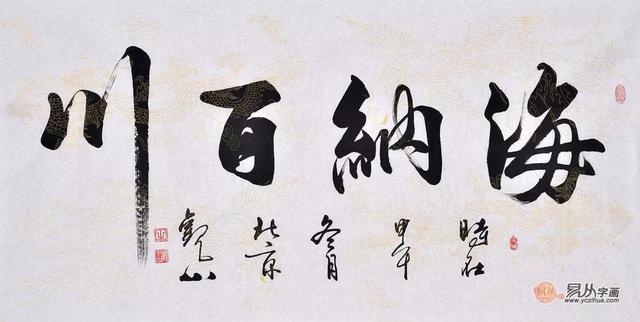 海納百川
時在甲午冬月北京觀山
易从字画
www.yczihua.com